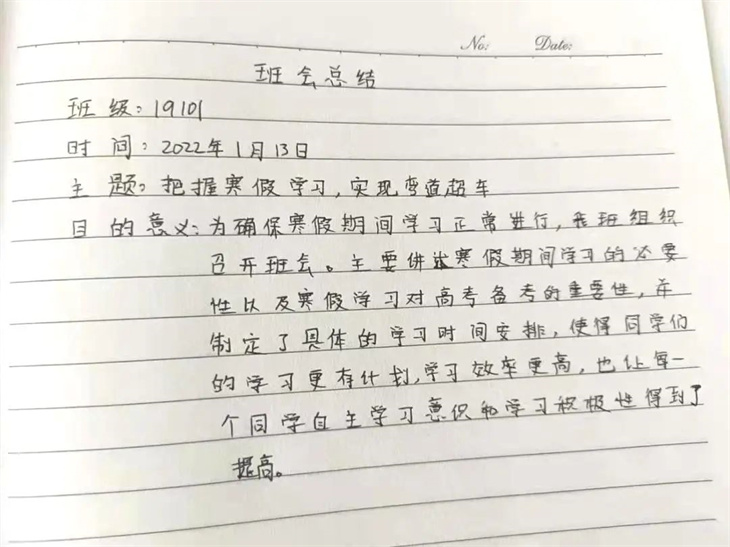 No: Date:
班会总结
班级：19101
时间：2022年1月13日
主题：把握寒假学习，实现弯道超车
目的意义：为确保寒假期间学习正常进行，我班组织
召开班会。主要讲述寒假期间学习的必要
性以及寒假学习对高考备考的重要性，并
制定了具体的学习时间安排，使得同学们
的学习更有计划，学习效率更高，也让每一
个同学自主学习意识和学习积极性得到了
提高。